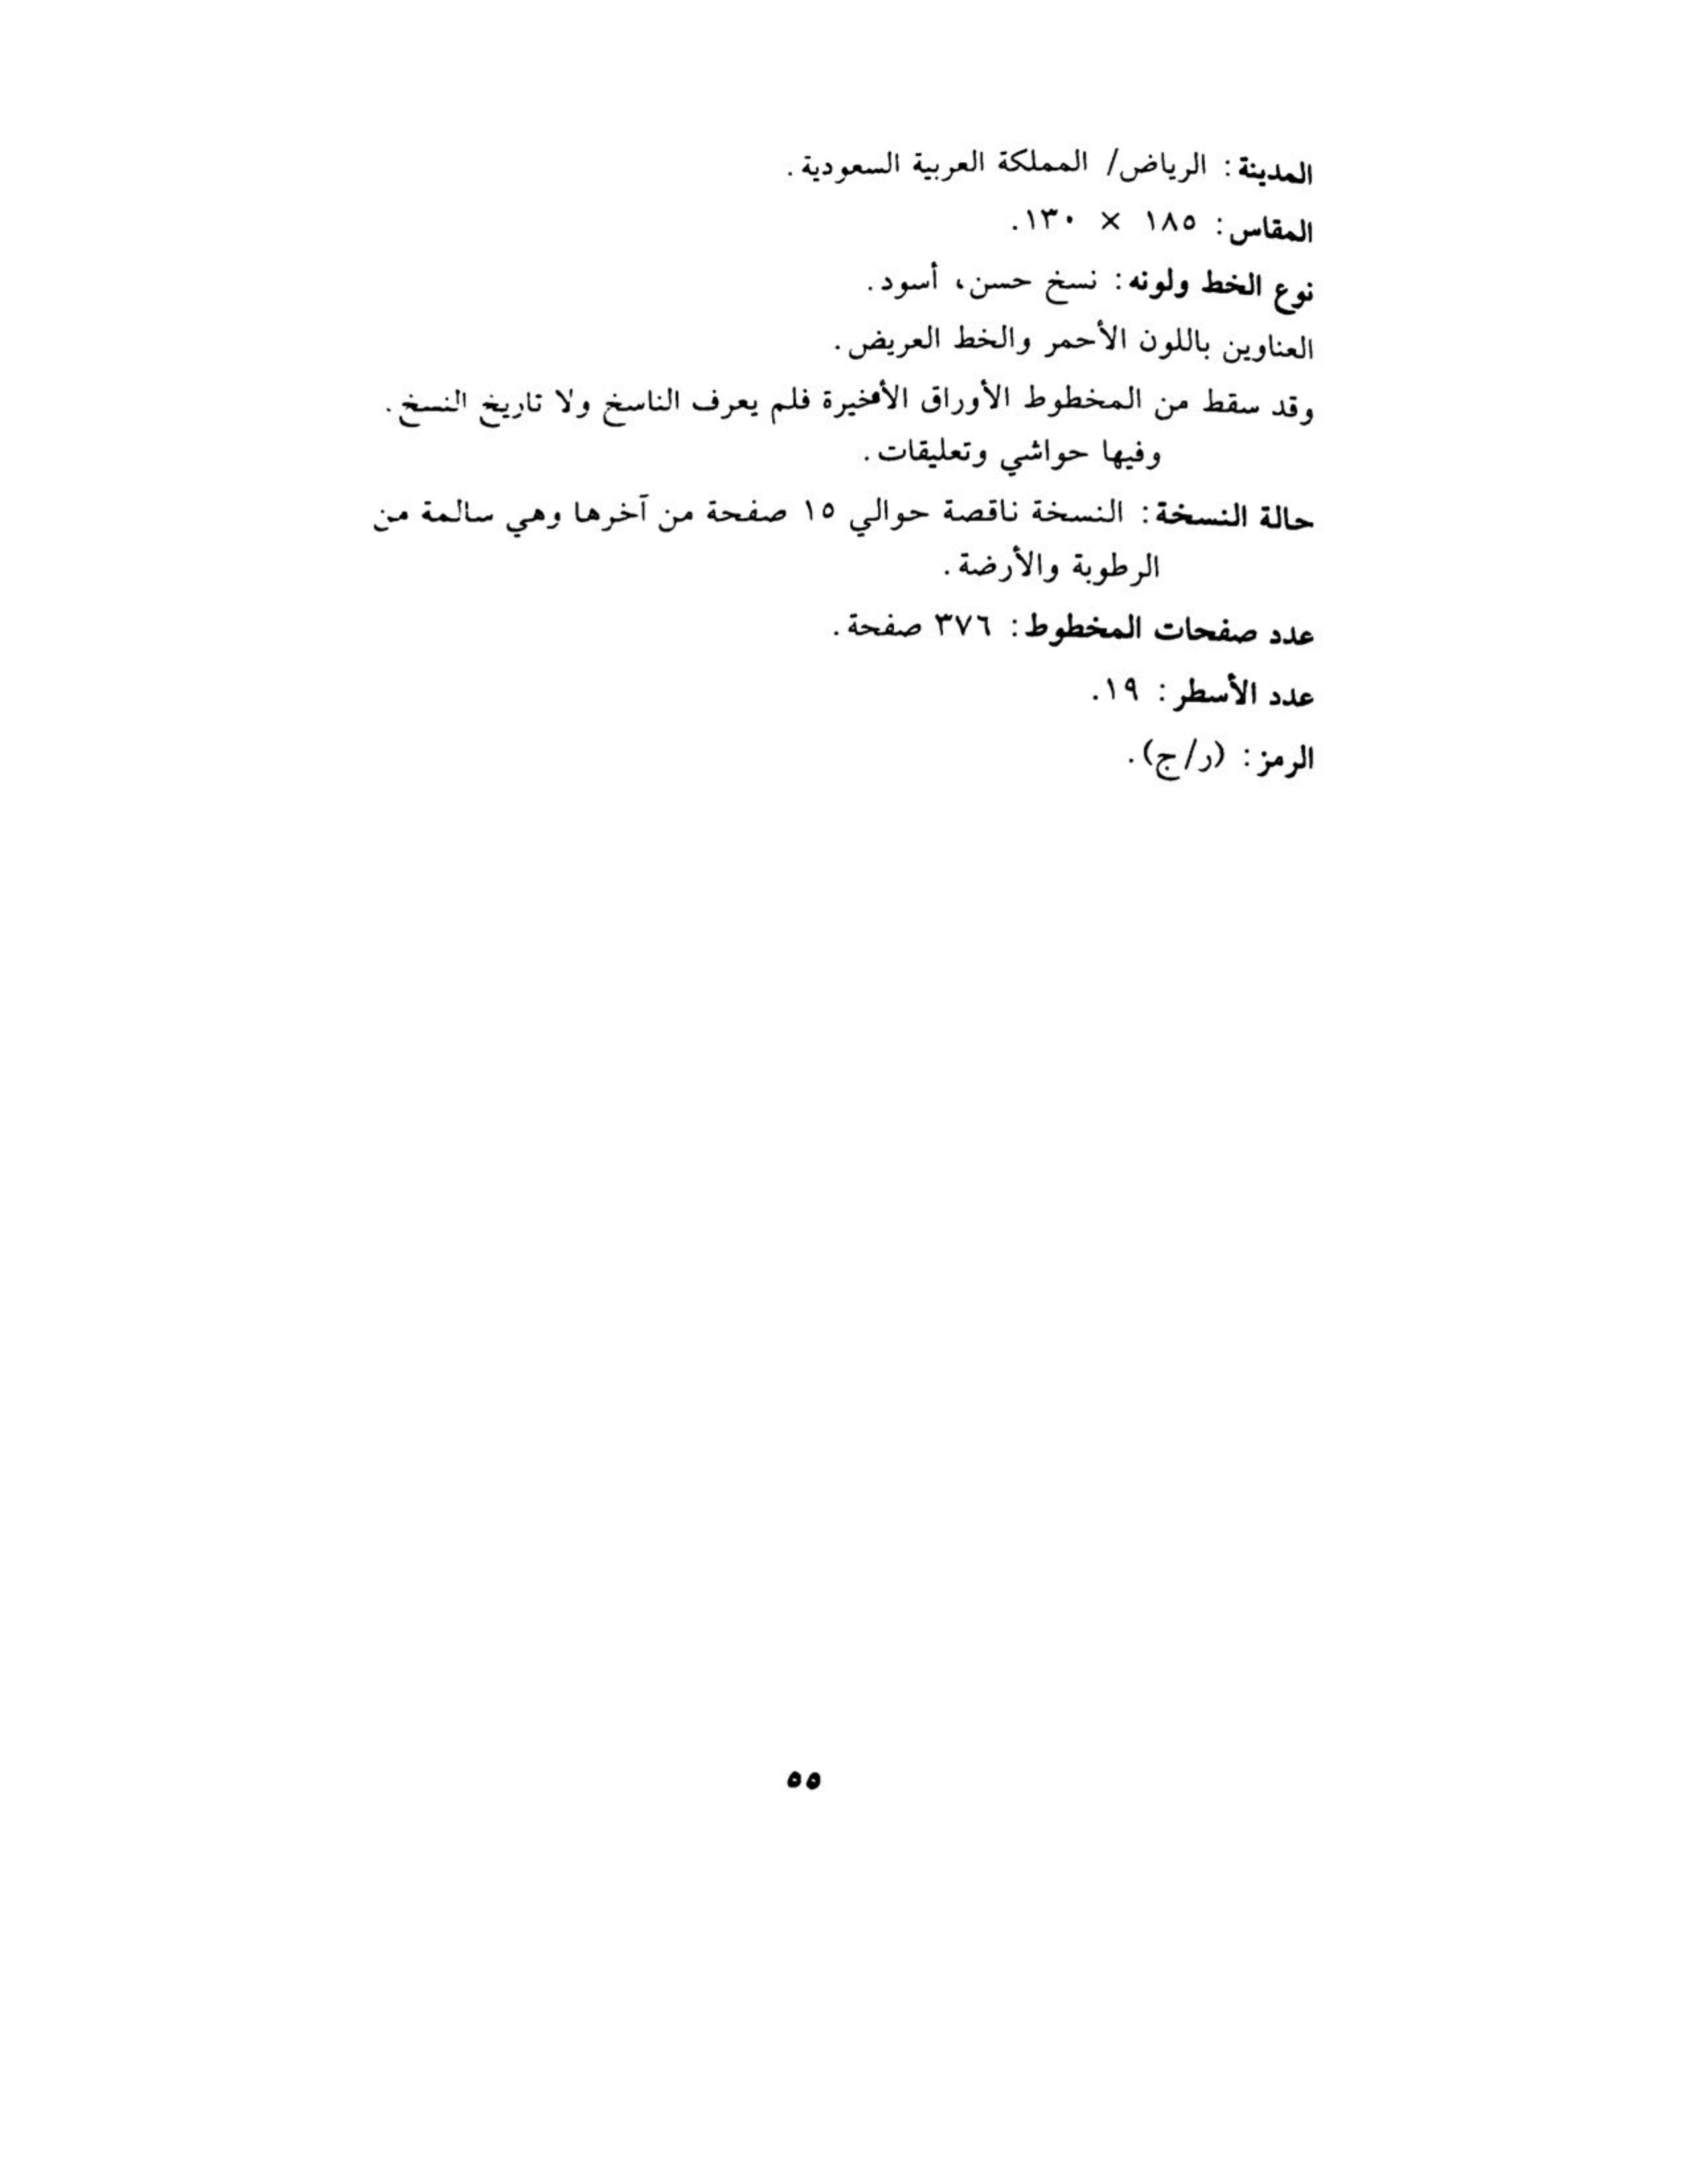 المدينة: الرياض/ المملكة العربية السعودية.
المقاس: ١٨٥ × ١٣٠.
نوع الخط ولونه: نسخ حسن، أسود.
العناوين باللون الأحمر والخط العريض.
وقد سقط من المخطوط الأوراق الأخيرة فلم يعرف الناسخ ولا تاريخ النسخ.
وفيها حواشي وتعليقات.
حالة النسخة: النسخة ناقصة حوالي ١٥ صفحة من آخرها وهي سالمة من
الرطوبة والأرضة.
عدد صفحات المخطوط: ٣٧٦ صفحة.
عدد الأسطر: ١٩.
الرمز: (ر/ج).
٥٥